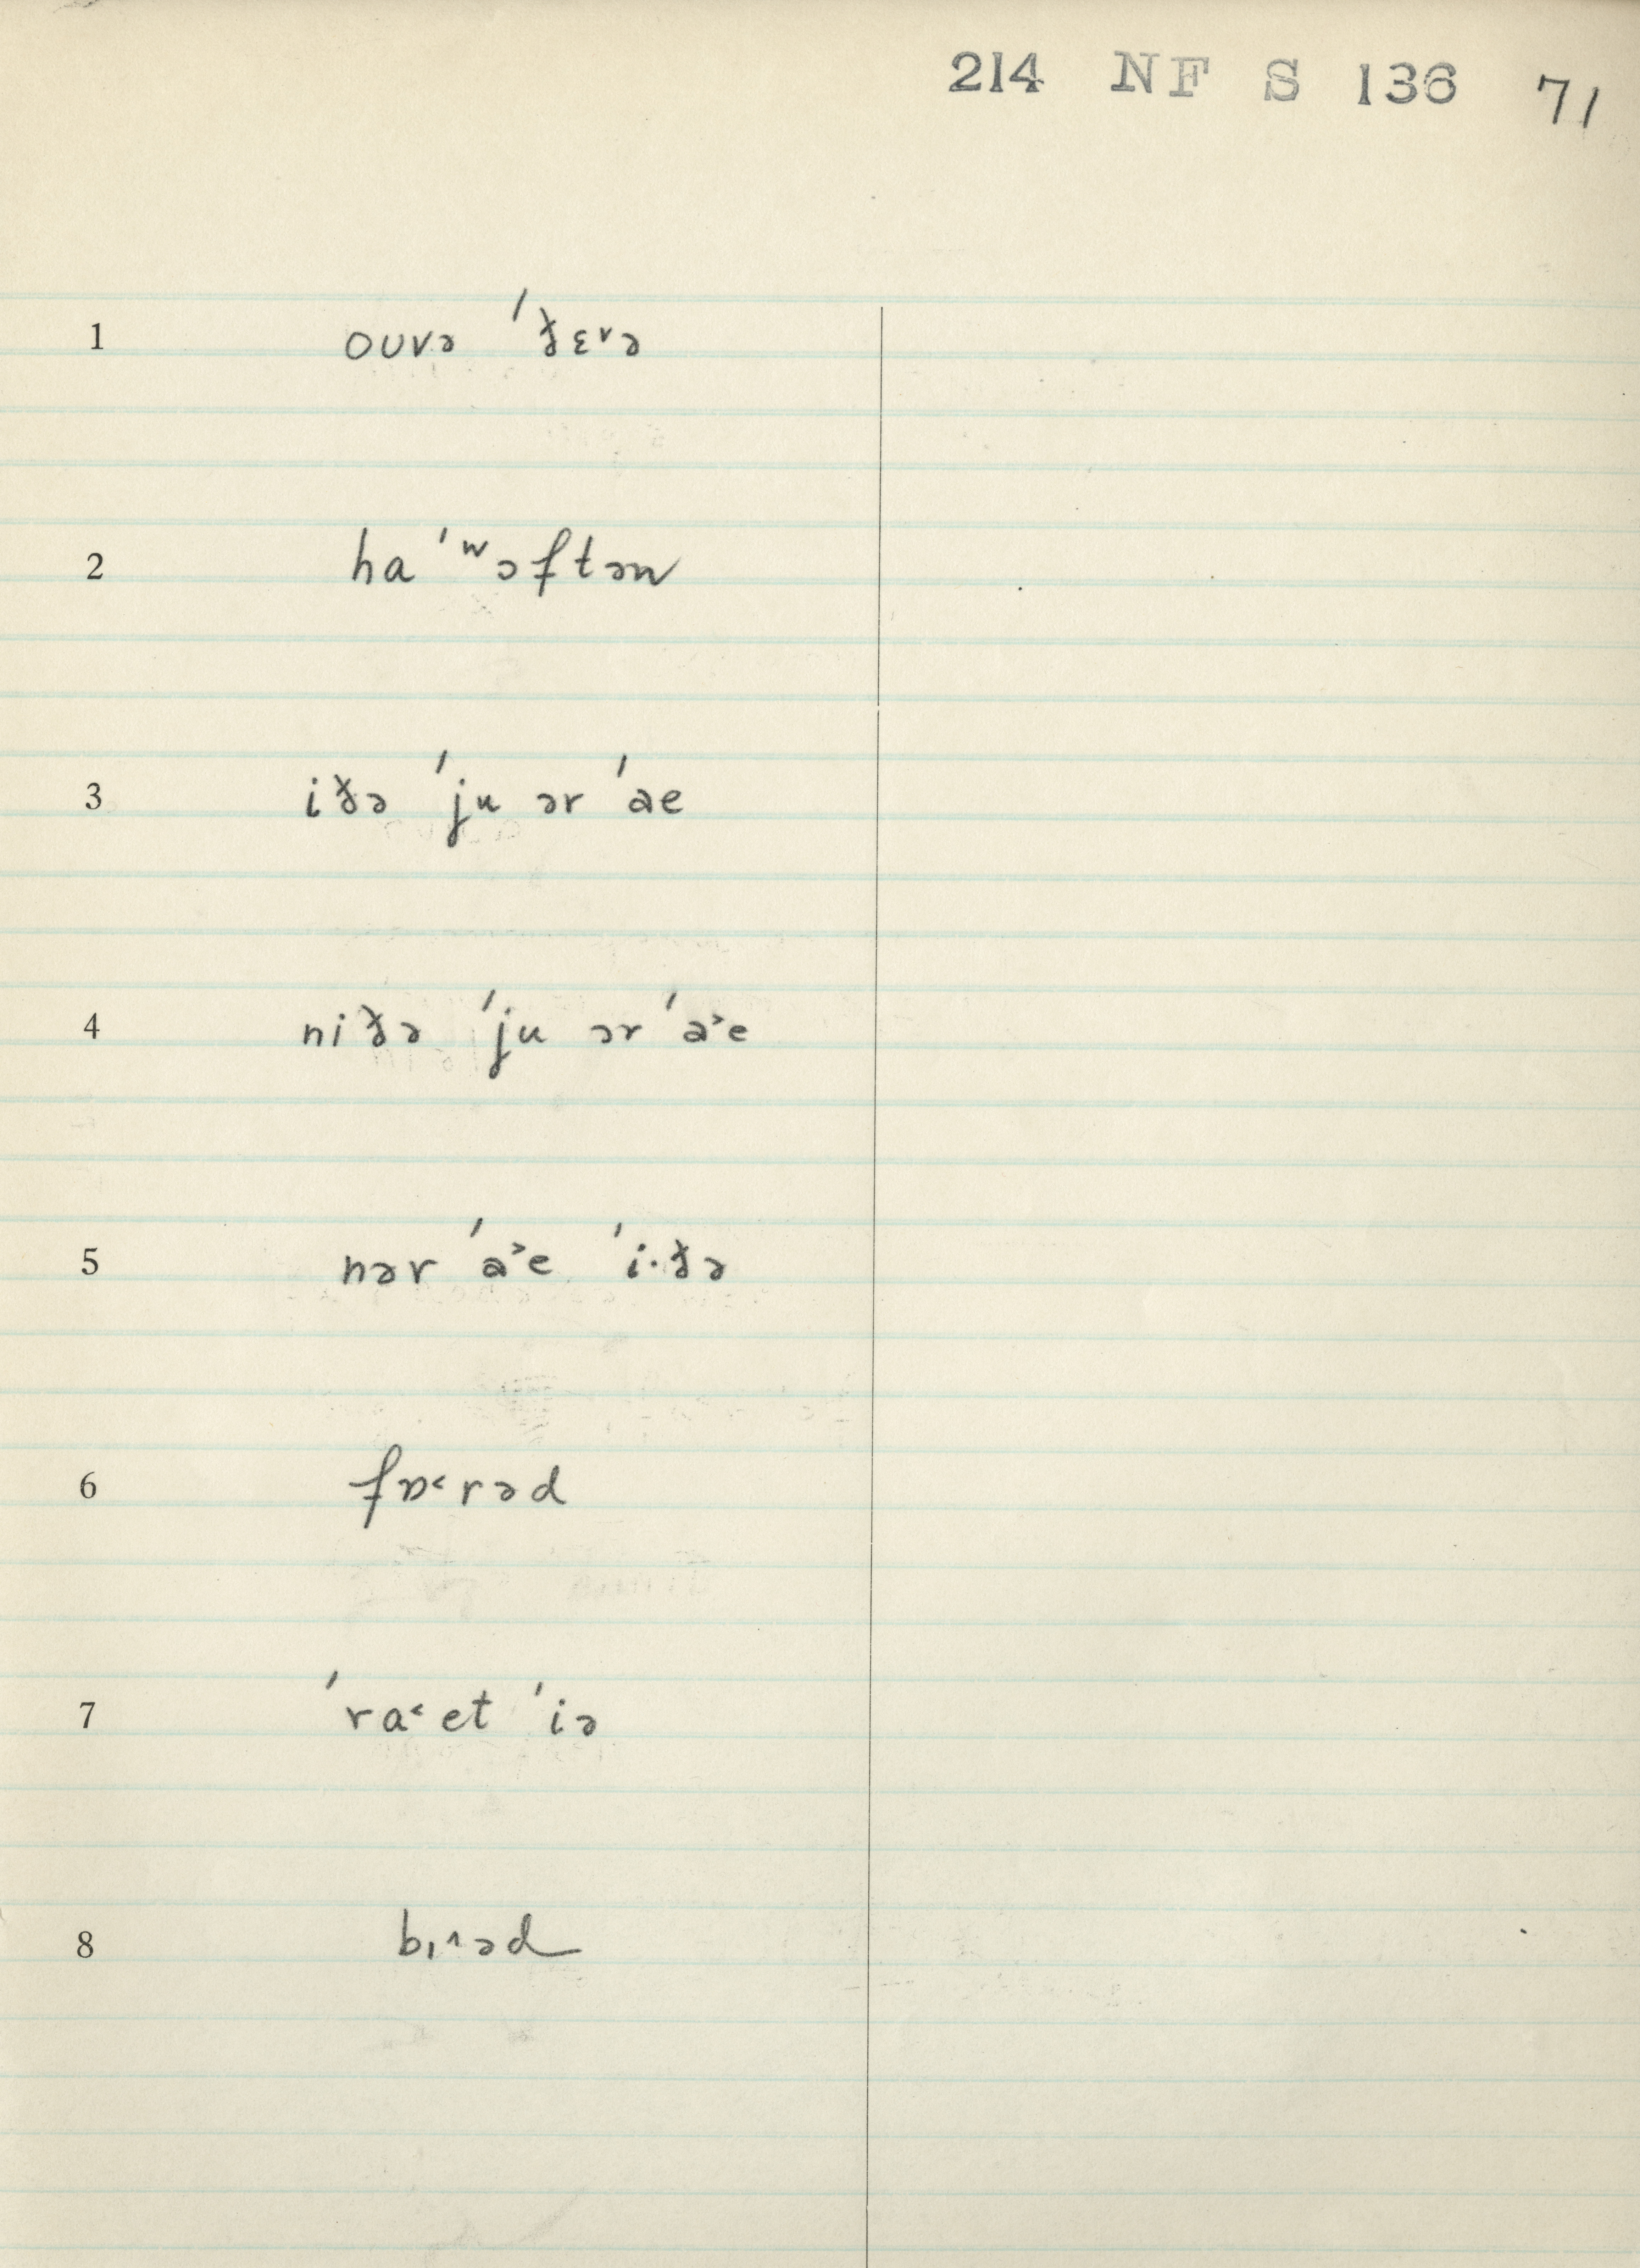 214 NF S 136 71
1 ouvə ˈðɛᵛə
2 haˈʷɔftən
3 iðə ˈju ər ˈae
4 niðə ˈju ər ˈa˃e
5 nər ˈa˃e ˈi·ðə
6 fɒ˂rəd
7 ˈra˂et ˈiə
8 bɪ˄əd